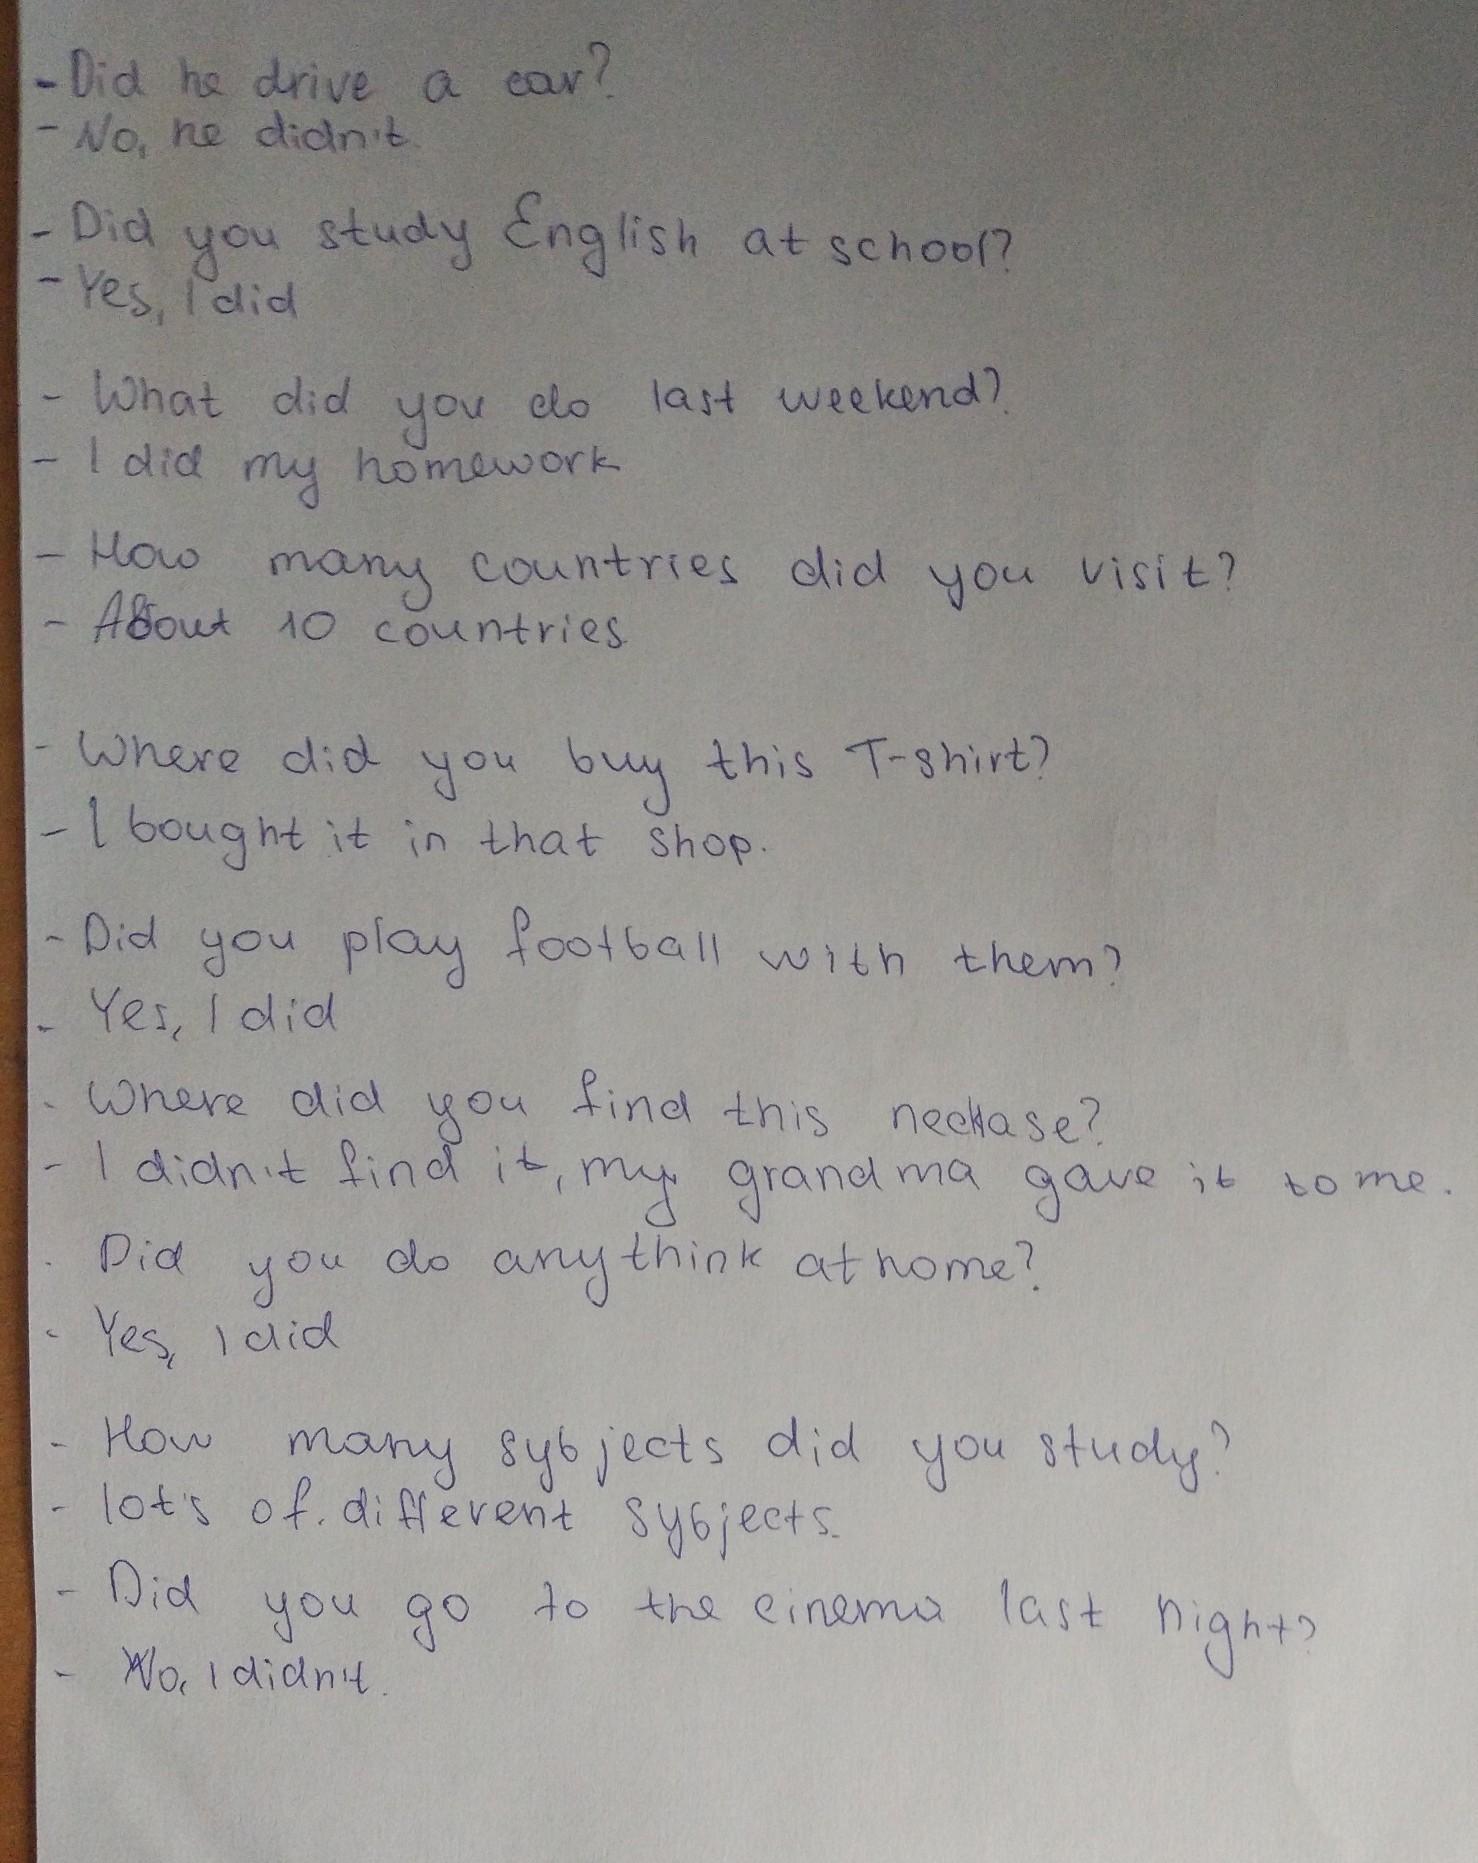 - Did he drive a car?
- No, he didn't.
- Did you study English at school?
- Yes, I did
- What did you do last weekend?
- I did my homework
- How many countries did you visit?
- About 10 countries.
- Where did you buy this T-shirt?
- I bought it in that shop.
- Did you play football with them?
- Yes, I did
- Where did you find this neclase?
- I didn't find it, my grandma gave it to me.
- Did you do anythink at home?
- Yes, I did
- How many sybjects did you study?
- lot's of different sybjects.
- Did you go to the cinema last night?
- No, I didn't.